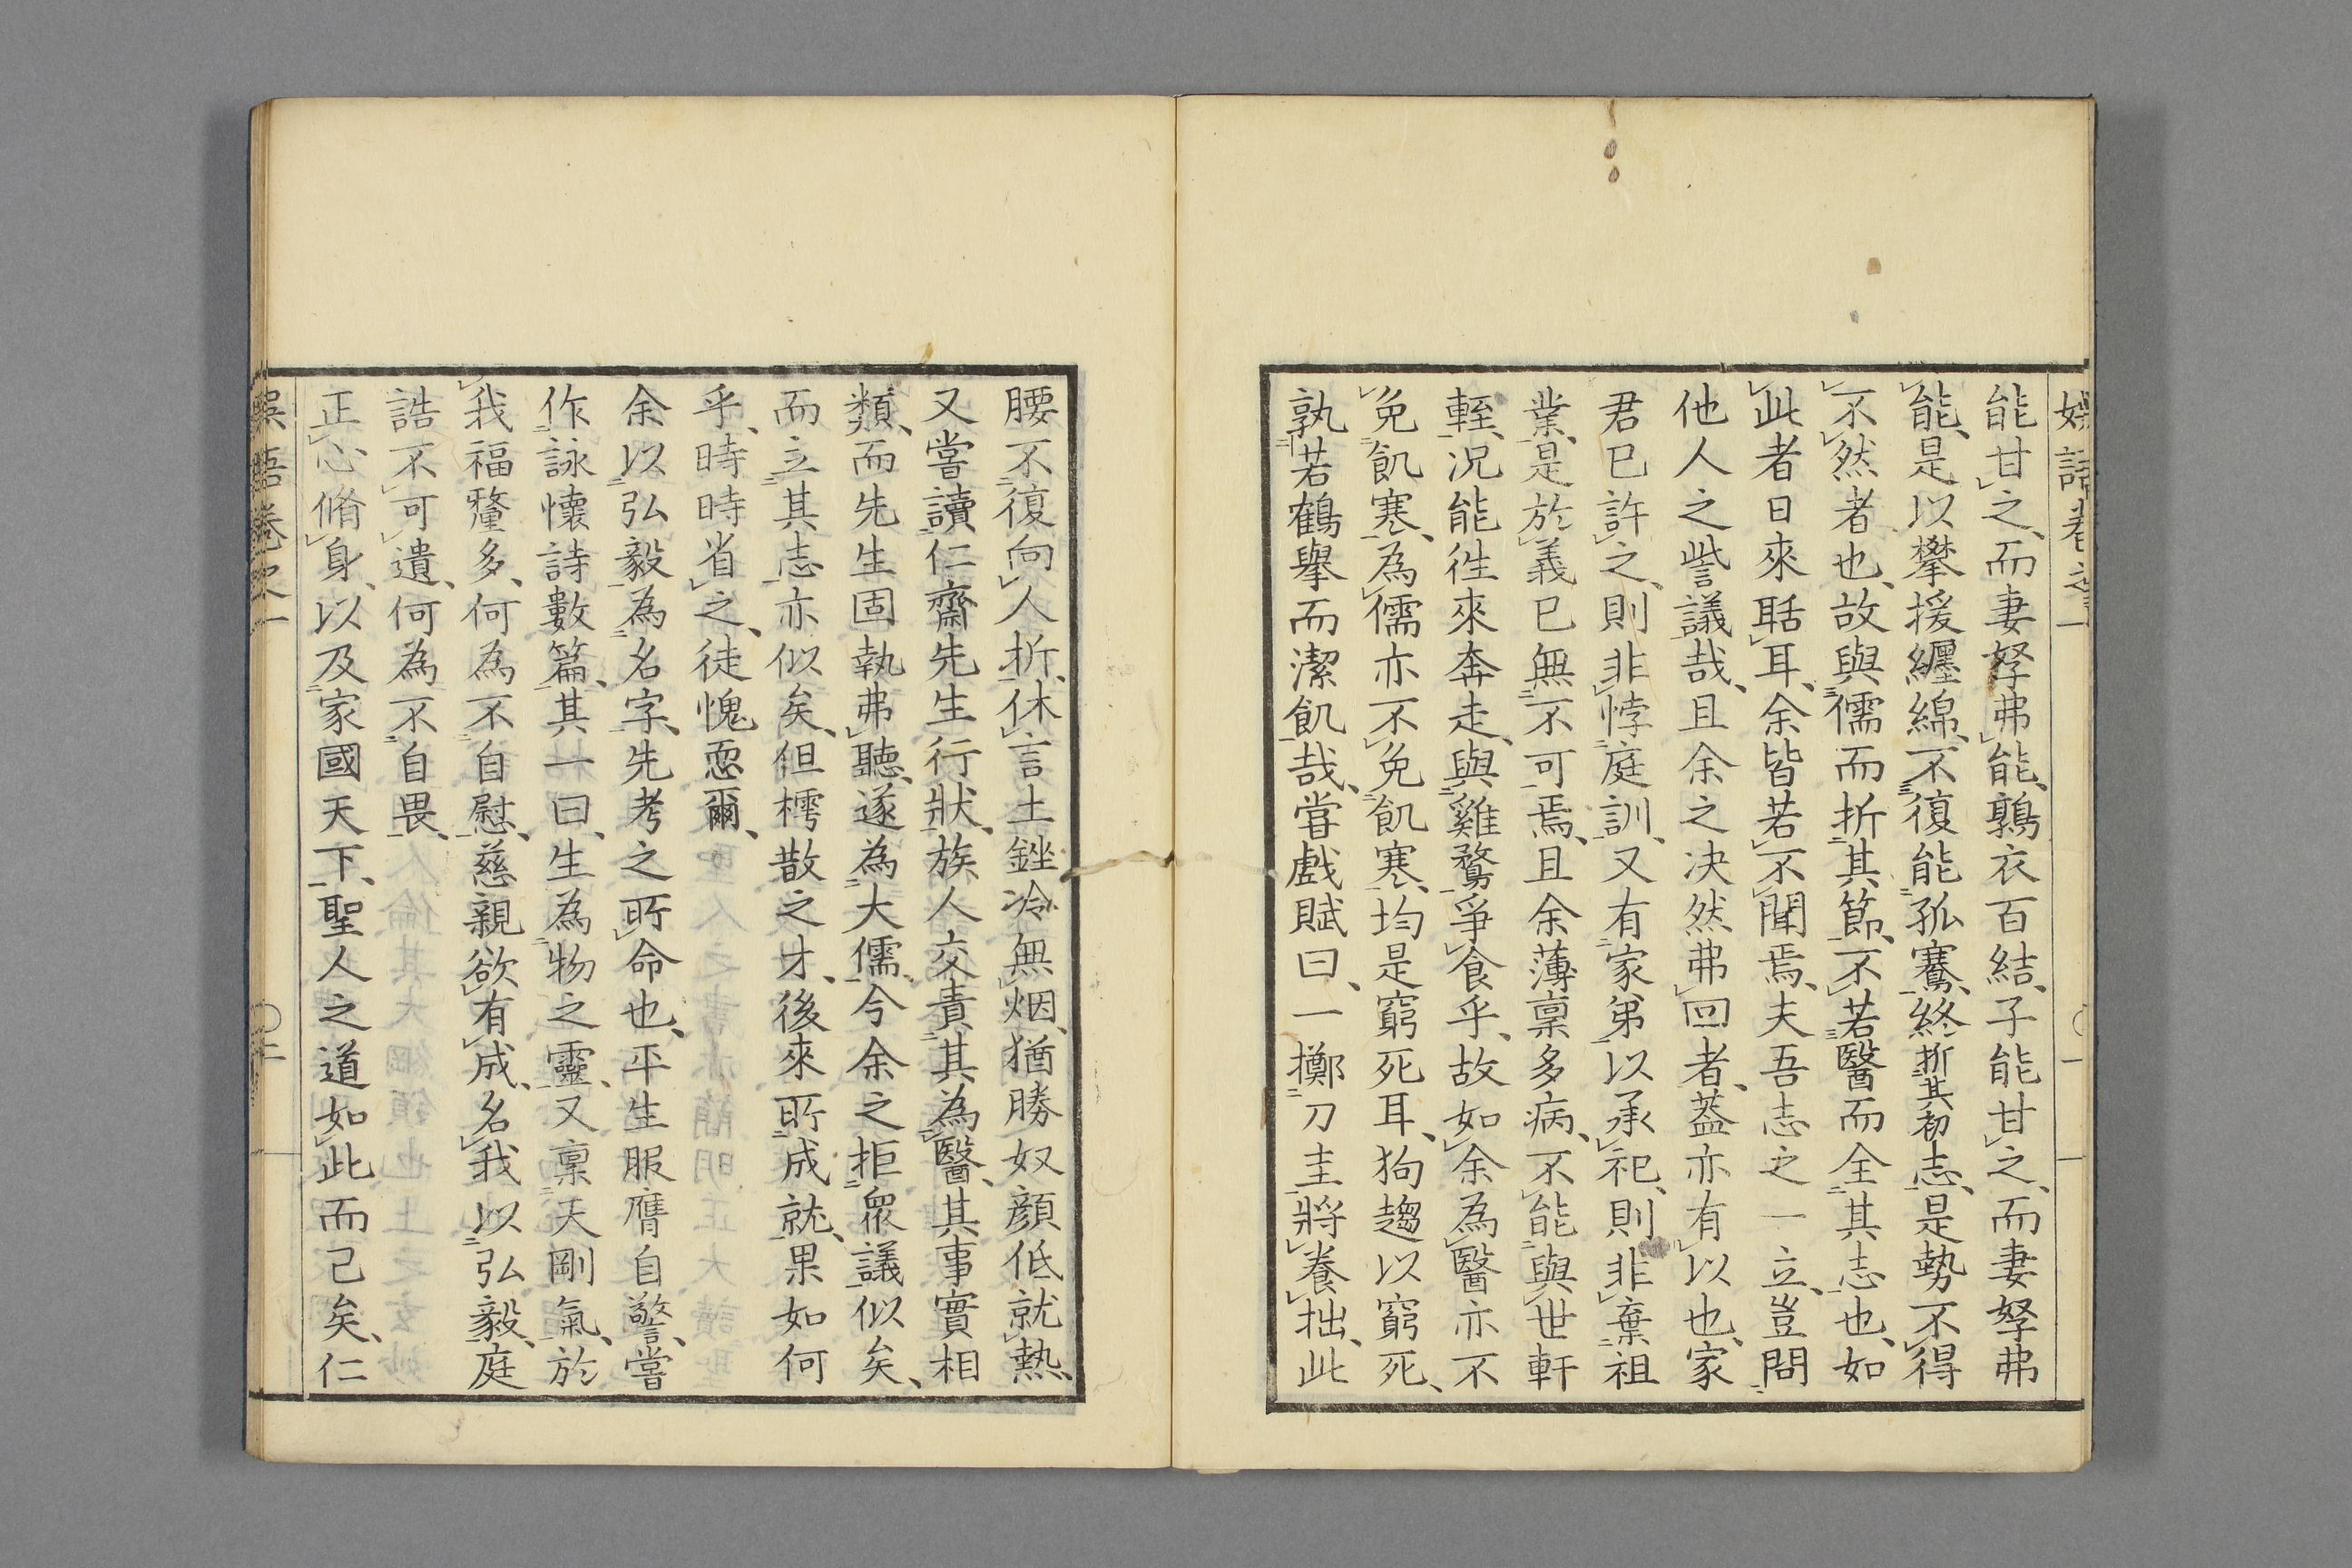 能甘之、而妻孥弗能、鶉衣百結、子能甘之、而妻孥弗
能、是以攀援纒綿、不復能孤騫、終折其初志、是勢不得
不然者也、故與儒而折其節、不若醫而全其志也、如
此者日來聒耳、余皆若不聞焉、夫吾志之一立、豈問
他人之訾議哉、且余之决然弗回者、葢亦有以也、家
君已許之、則非悖庭訓、又有家弟以承祀、則非棄祖
業、是於義已無不可焉、且余薄禀多病、不能與世軒
輊、況能徃來奔走、與雞鶩爭食乎、故如余為醫亦不
免飢寒、為儒亦不免飢寒、均是窮死耳、狗趨以窮死、
孰若鶴擧而潔飢哉、嘗戲賦曰、一擲刀圭將養拙、此
腰不復向人折、休言土銼冷無烟、猶勝奴顏低就熱、
又嘗讀仁齋先生行狀、族人交責其為醫、其事實相
類、而先生固執弗聽、遂為大儒、今余之拒衆議似矣、
而立其志亦似矣、但樗散之才、後來所成就、果如何
乎、時時省之、徒愧恧爾、
余以弘毅為名字、先考之所命也、平生服膺自警、嘗
作詠懷詩數篇、其一曰、生為物之靈、又稟天剛氣、於
我福釐多、何為不自慰、慈親欲有成、名我以弘毅、庭
誥不可遺、何為不自畏、
正心脩身、以及家國天下、聖人之道如此而已矣、仁